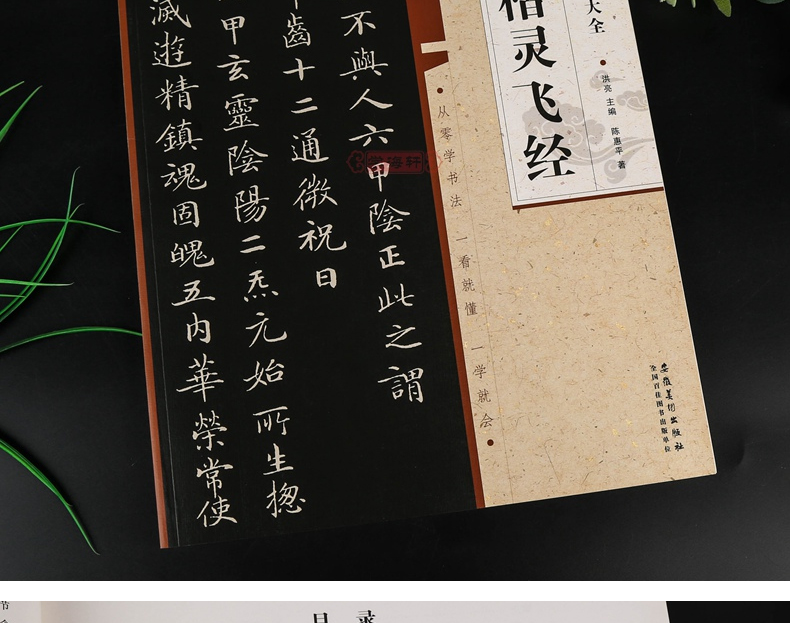 楷灵飞经
大全
洪亮 主编 陈惠平 著
从零学书法 一看就懂 一学就会
安徽美术出版社
全国百佳图书出版单位
不與人六甲陰正此之謂
齒十二通微祝曰
甲玄靈陰陽二炁元始所生揔
滅遊精鎮魂固魄五内華榮常使
学海轩
目录
节